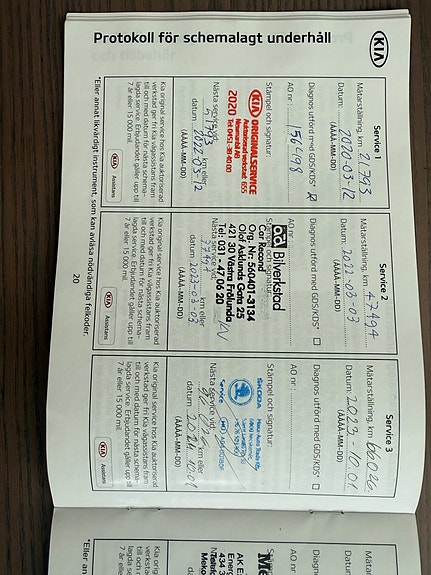 Protokoll för schemalagt underhåll
KIA
Service 1
Mätarställning, km 21793
Datum: 2020-03-12
(ÅÅÅÅ-MM-DD)
Diagnos utförd med GDS/KDS*
AO nr: 156498
Stämpel och signatur:
KIA ORIGINALSERVICE
2020 Tel 0451-38 40 00
Nästa service vid:
51793 km eller
datum: 2022-03-12
(ÅÅÅÅ-MM-DD)
Kia original service hos Kia auktoriserad
verkstad ger fri Kia vägassistans fram
till och med datum för nästa schema-
lagda service. Erbjudandet gäller upp till
7 år eller 15 000 mil.
KIA Assistans
Service 2
Mätarställning, km 47494
Datum: 2022-03-03
(ÅÅÅÅ-MM-DD)
Diagnos utförd med GDS/KDS*
AO nr:
Stämpel och signatur:
ad Bilverkstad
Car Recond
Org. Nr: 560401-3134
Olof Asklunds Gata 25
421 30 Västra Frölunda
Tel: 031 - 47 06 20
Nästa service vid:
77494 km eller
datum: 2023-03-03
(ÅÅÅÅ-MM-DD)
Kia original service hos Kia auktoriserad
verkstad ger fri Kia vägassistans fram
till och med datum för nästa schema-
lagda service. Erbjudandet gäller upp till
7 år eller 15 000 mil.
KIA Assistans
Service 3
Mätarställning, km 66026
Datum: 2023-10-01
(ÅÅÅÅ-MM-DD)
Diagnos utförd med GDS/KDS*
AO nr:
Stämpel och signatur:
ŠKODA
Service
Nästa service vid:
km eller
datum: 2024.10.01
(ÅÅÅÅ-MM-DD)
Kia original service hos Kia auktoriserad
verkstad ger fri Kia vägassistans fram
till och med datum för nästa schema-
lagda service. Erbjudandet gäller upp till
7 år eller 15 000 mil.
KIA Assistans
*Eller annat likvärdigt instrument, som kan avläsa nödvändiga felkoder.
20